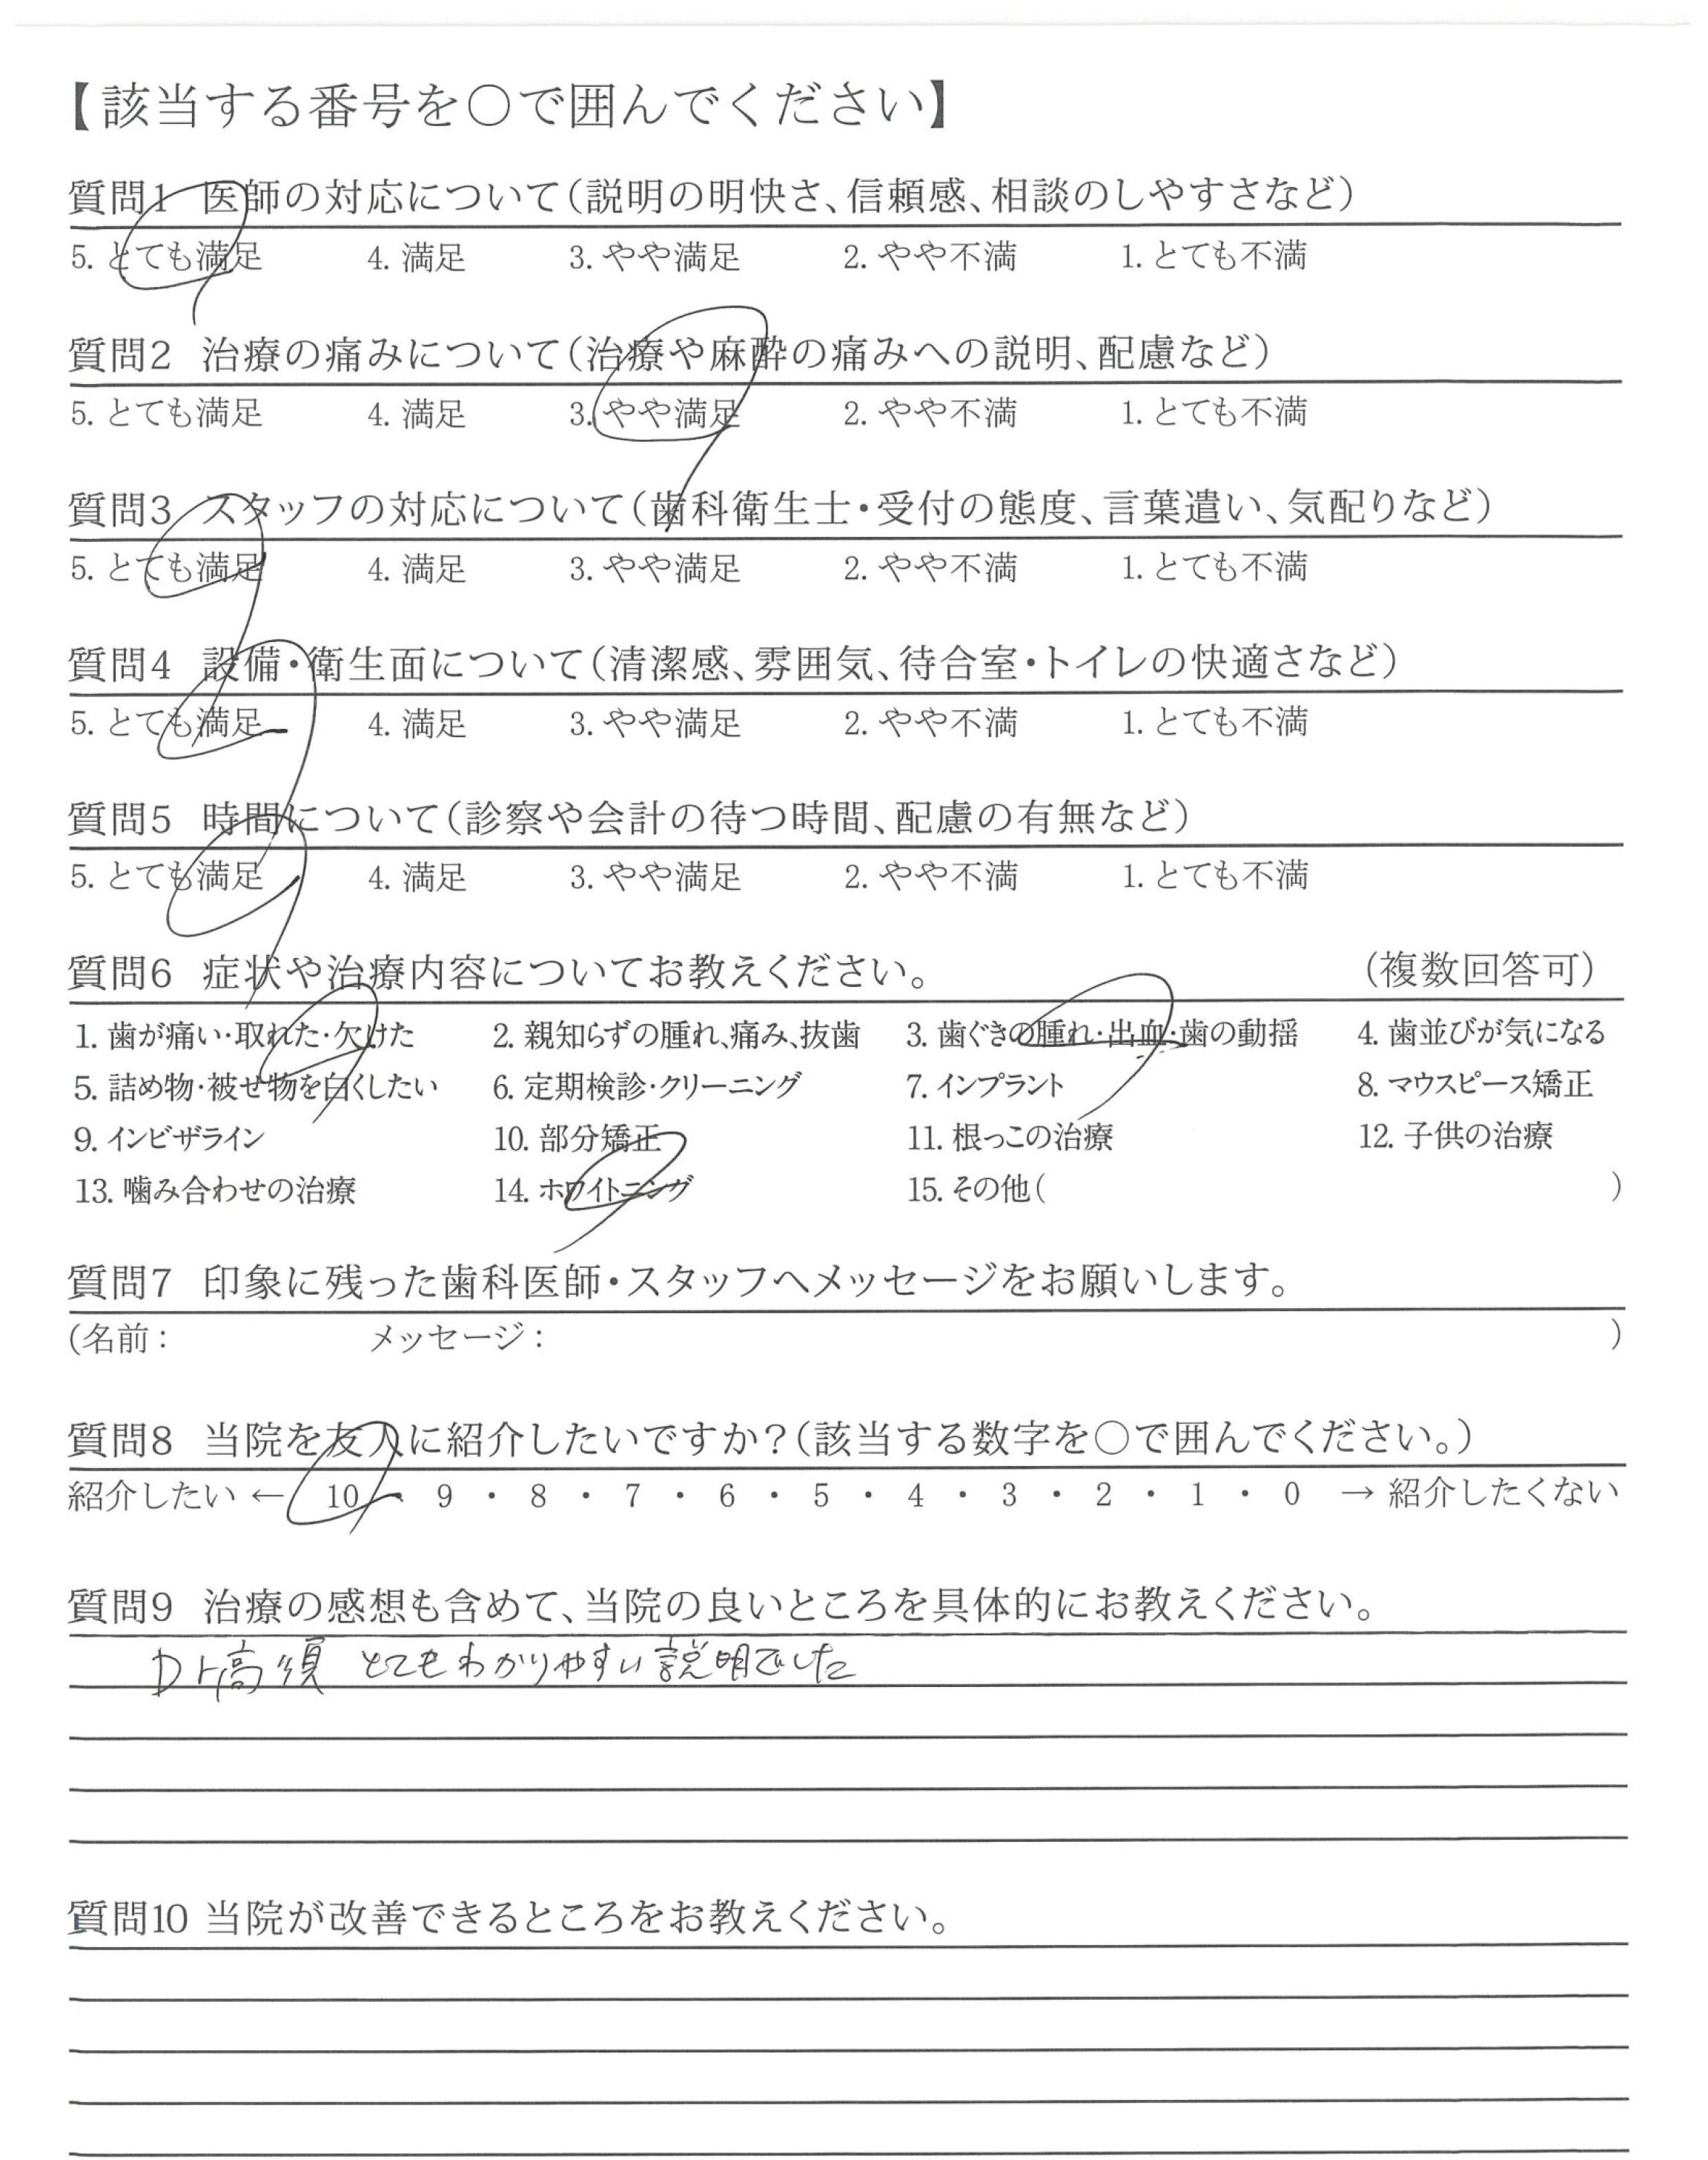 【該当する番号を○で囲んでください】
質問1 医師の対応について(説明の明快さ、信頼感、相談のしやすさなど)
5. とても満足 4. 満足 3. やや満足 2. やや不満 1. とても不満
質問2 治療の痛みについて(治療や麻酔の痛みへの説明、配慮など)
5. とても満足 4. 満足 3. やや満足 2. やや不満 1. とても不満
質問3 スタッフの対応について(歯科衛生士・受付の態度、言葉遣い、気配りなど)
5. とても満足 4. 満足 3. やや満足 2. やや不満 1. とても不満
質問4 設備・衛生面について(清潔感、雰囲気、待合室・トイレの快適さなど)
5. とても満足 4. 満足 3. やや満足 2. やや不満 1. とても不満
質問5 時間について(診察や会計の待つ時間、配慮の有無など)
5. とても満足 4. 満足 3. やや満足 2. やや不満 1. とても不満
質問6 症状や治療内容についてお教えください。 (複数回答可)
1. 歯が痛い・取れた・欠けた 2. 親知らずの腫れ、痛み、抜歯 3. 歯ぐきの腫れ・出血・歯の動揺 4. 歯並びが気になる
5. 詰め物・被せ物を白くしたい 6. 定期検診・クリーニング 7. インプラント 8. マウスピース矯正
9. インビザライン 10. 部分矯正 11. 根っこの治療 12. 子供の治療
13. 噛み合わせの治療 14. ホワイトニング 15. その他( )
質問7 印象に残った歯科医師・スタッフへメッセージをお願いします。
(名前: メッセージ: )
質問8 当院を友人に紹介したいですか?(該当する数字を○で囲んでください。)
紹介したい ← 10 ・ 9 ・ 8 ・ 7 ・ 6 ・ 5 ・ 4 ・ 3 ・ 2 ・ 1 ・ 0 → 紹介したくない
質問9 治療の感想も含めて、当院の良いところを具体的にお教えください。
Dr高須 とてもわかりやすい説明でした
質問10 当院が改善できるところをお教えください。